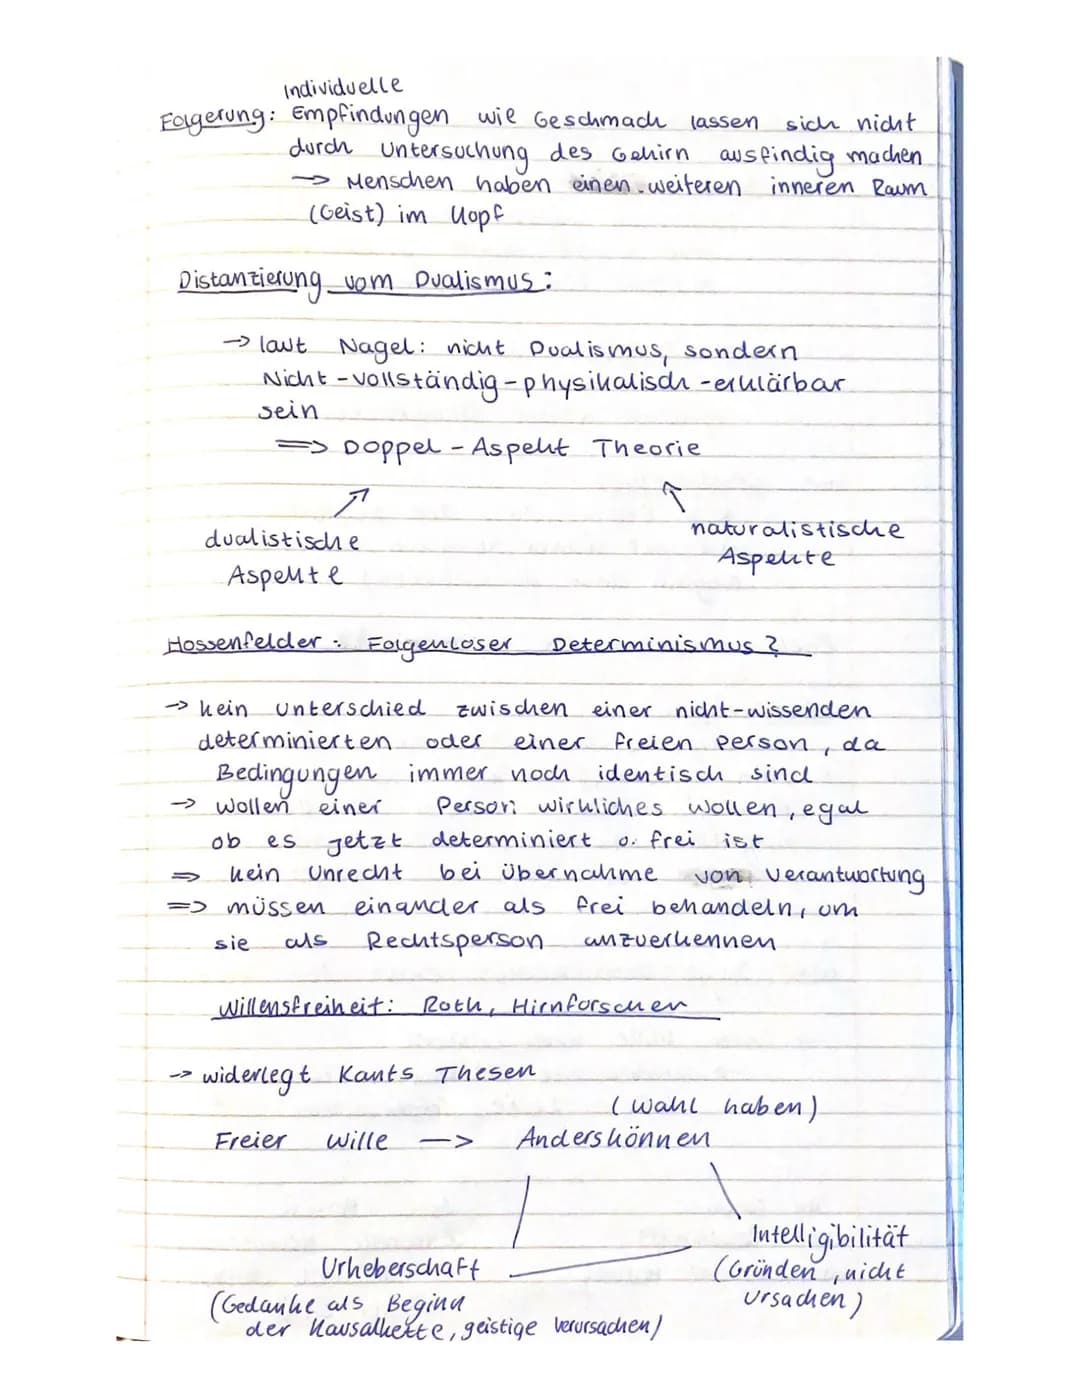 Individuelle
Folgerung: Empfindungen wie Geschmack lassen sich nicht
durch Untersuchung des Gehirn ausfindig machen
→ Menschen haben einen weiteren inneren Raum
(Geist) im Kopf
Distanzierung vom Dualismus:
→ laut Nagel: nicht Dualismus, sondern
Nicht-vollständig-physikalisch-erklärbar
sein
=> Doppel-Aspekt Theorie
dualistische
Aspekte
naturalistische
Aspekte
Hossenfelder: Folgenloser Determinismus?
→ kein Unterschied zwischen einer nicht-wissenden
determinierten oder einer freien Person, da
Bedingungen immer noch identisch sind
→ Wollen einer Person: wirkliches Wollen, egal
ob es jetzt determiniert o. frei ist
=> kein Unrecht bei Übernahme von Verantwortung
=> müssen einander als frei behandeln, um
sie als Rechtsperson anzuerkennen
Willensfreiheit: Roth, Hirnforscher
→ widerlegt Kants Thesen
(Wahl haben)
Freier Wille → Anderskönnen
Intelligibilität
(Gründen, nicht
Ursachen)
Urheberschaft
(Gedanke als Beginn
der Kausalkette, geistige Verursachen)